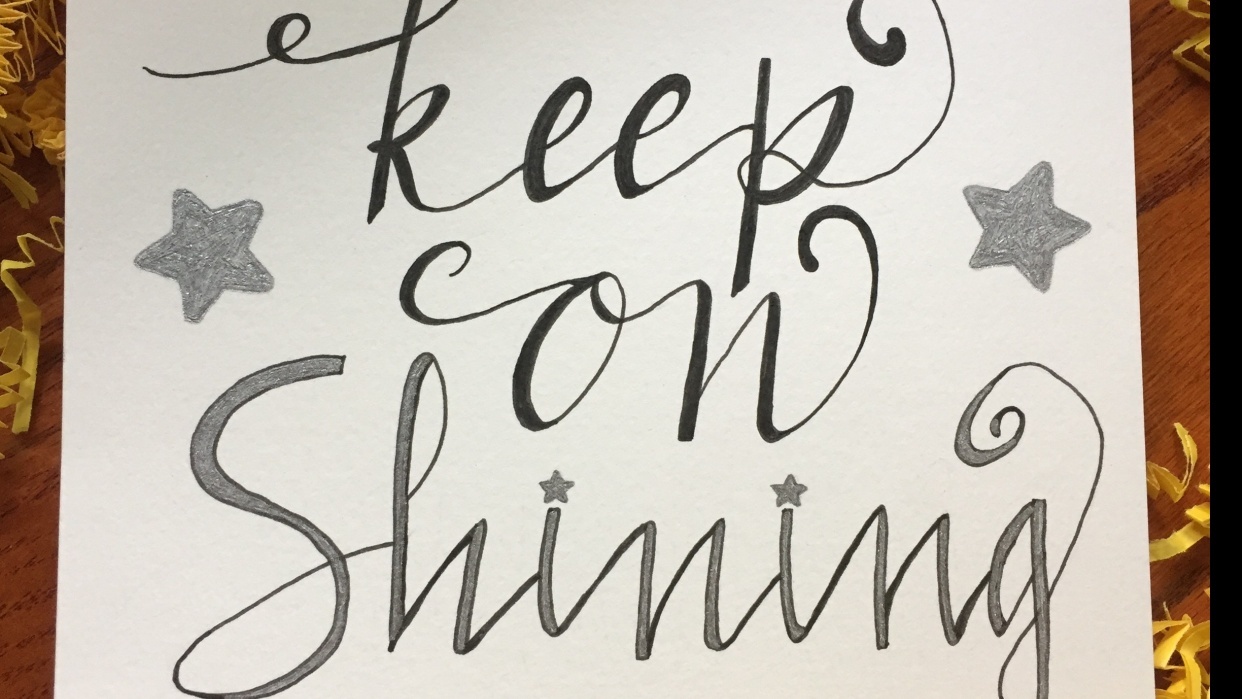 keep
on
Shining